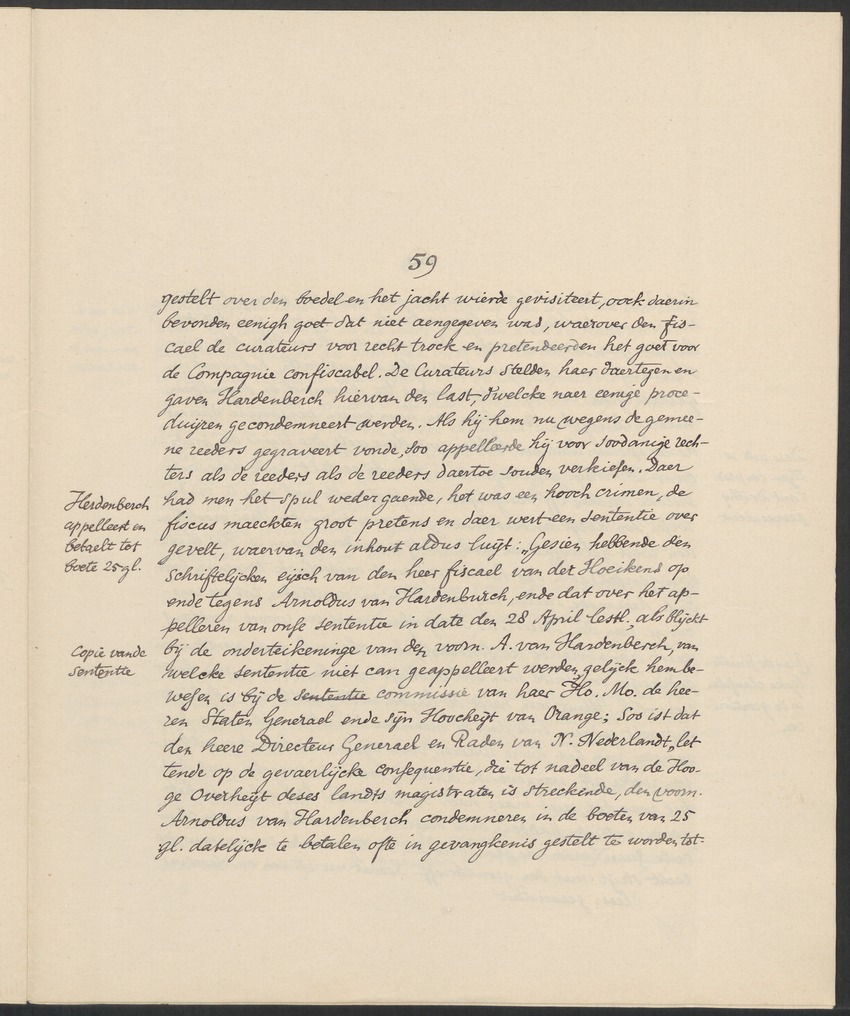 59
gestelt over den boedel en het jacht wierde gevisiteert, oock daerin
bevonden eenigh goet dat niet aengegeven was, waerover den fis-
cael de curateurs voor recht trock en pretendeerden het goet voor
de Compagnie confiscabel. De Curateurs stelden haer daertegen en
gaven Hardenberch hiervan den last, d'welcke naer eenige proce-
duijren gecondemneert werden. Als hij hem nu wegens de gemee-
ne reeders gegraveert vonde, soo appelleerde hij voor soodanige rech-
ters als de reeders als de reeders daertoe souden verkiesen. Daer
had men het spul weder gaende, het was een hooch crimen, de
fiscus maeckten groot pretens en daer wert een sententie over
gevelt, waervan den inhout aldus luijt: „Gesien hebbende den
schriftelijcken eijsch van den heer fiscael van der Hoeikens op
ende tegens Arnoldus van Hardenburch, ende dat over het ap-
pelleren van onse sententie in date den 28 April lestl., als blijckt
bij de onderteikeninge van den voorn. A. van Hardenberch, van
welcke sententie niet can geappelleert werden, gelijck hem be-
wesen is bij de sententie commissie van haer Ho. Mo. de hee-
ren Staten Generael ende sijn Hoocheijt van Orange; Soo ist dat
den heere Directeur Generael en Raden van N. Nederlandt, let
tende op de gevaerlijcke consequentie, die tot nadeel van de Hoo-
ge Overheijt deses landts magistraten is streckende, den voorn.
Arnoldus van Hardenberch condemneren in de boeten van 25
gl. datelijck te betalen ofte in gevangkenis gestelt te worden tot-
Herdenberch
appelleert en
betaelt tot
boete 25 gl.
Copie vande
sententie